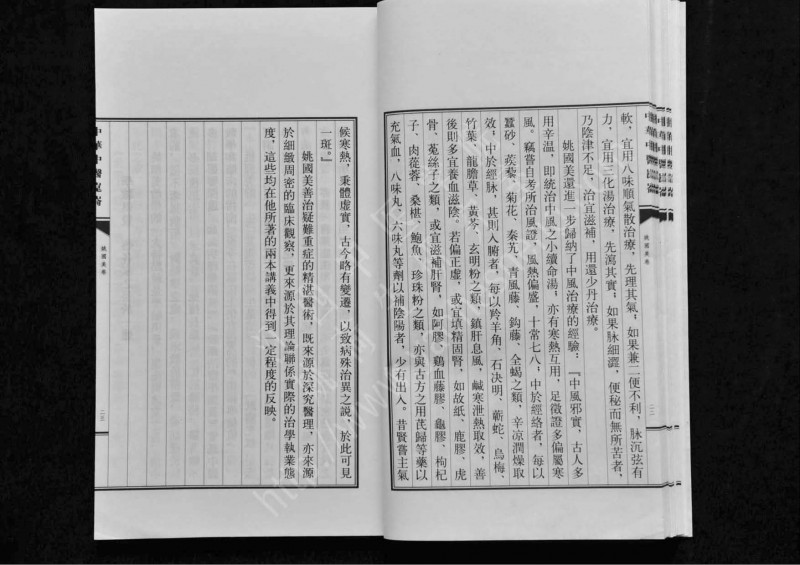 軟，宜用八味順氣散治療，先理其氣；如果兼二便不利，脉沉弦有
力，宜用三化湯治療，先瀉其實；如果脉細澀，便秘而無所苦者，
乃陰津不足，治宜滋補，用還少丹治療。
姚國美還進一步歸納了中風治療的經驗：『中風邪實，古人多
用辛温，即統治中風之小續命湯；亦有寒熱互用，足徵證多偏屬寒
風。竊嘗自考所治風證，風熱偏盛，十常七八；中於經絡者，每以
蠶砂、蒺藜、菊花、秦艽、青風藤、鈎藤、全蝎之類，辛凉潤燥取
效；中於經脉，甚則入腑者，每以羚羊角、石决明、蘄蛇、烏梅、
竹葉、龍膽草、黃芩、玄明粉之類，鎮肝息風，鹹寒泄熱取效，善
後則多宜養血滋陰。若偏正虛，或宜填精固腎，如故紙、鹿膠、虎
骨、菟絲子之類，或宜滋補肝腎，如阿膠、鷄血藤膠、龜膠、枸杞
子、肉蓯蓉、桑椹、鮑魚、珍珠粉之類，亦與古方之用芪歸等藥以
充氣血，八味丸、六味丸等劑以補陰陽者，少有出入。昔賢嘗主氣
二二
候寒熱，秉體虛實，古今略有變遷，以致病殊治異之説，於此可見
一斑。』
姚國美善治疑難重症的精湛醫術，既來源於深究醫理，亦來源
於細緻周密的臨床觀察，更來源於其理論聯係實際的治學執業態
度，這些均在他所著的兩本講義中得到一定程度的反映。
姚國美卷
二三